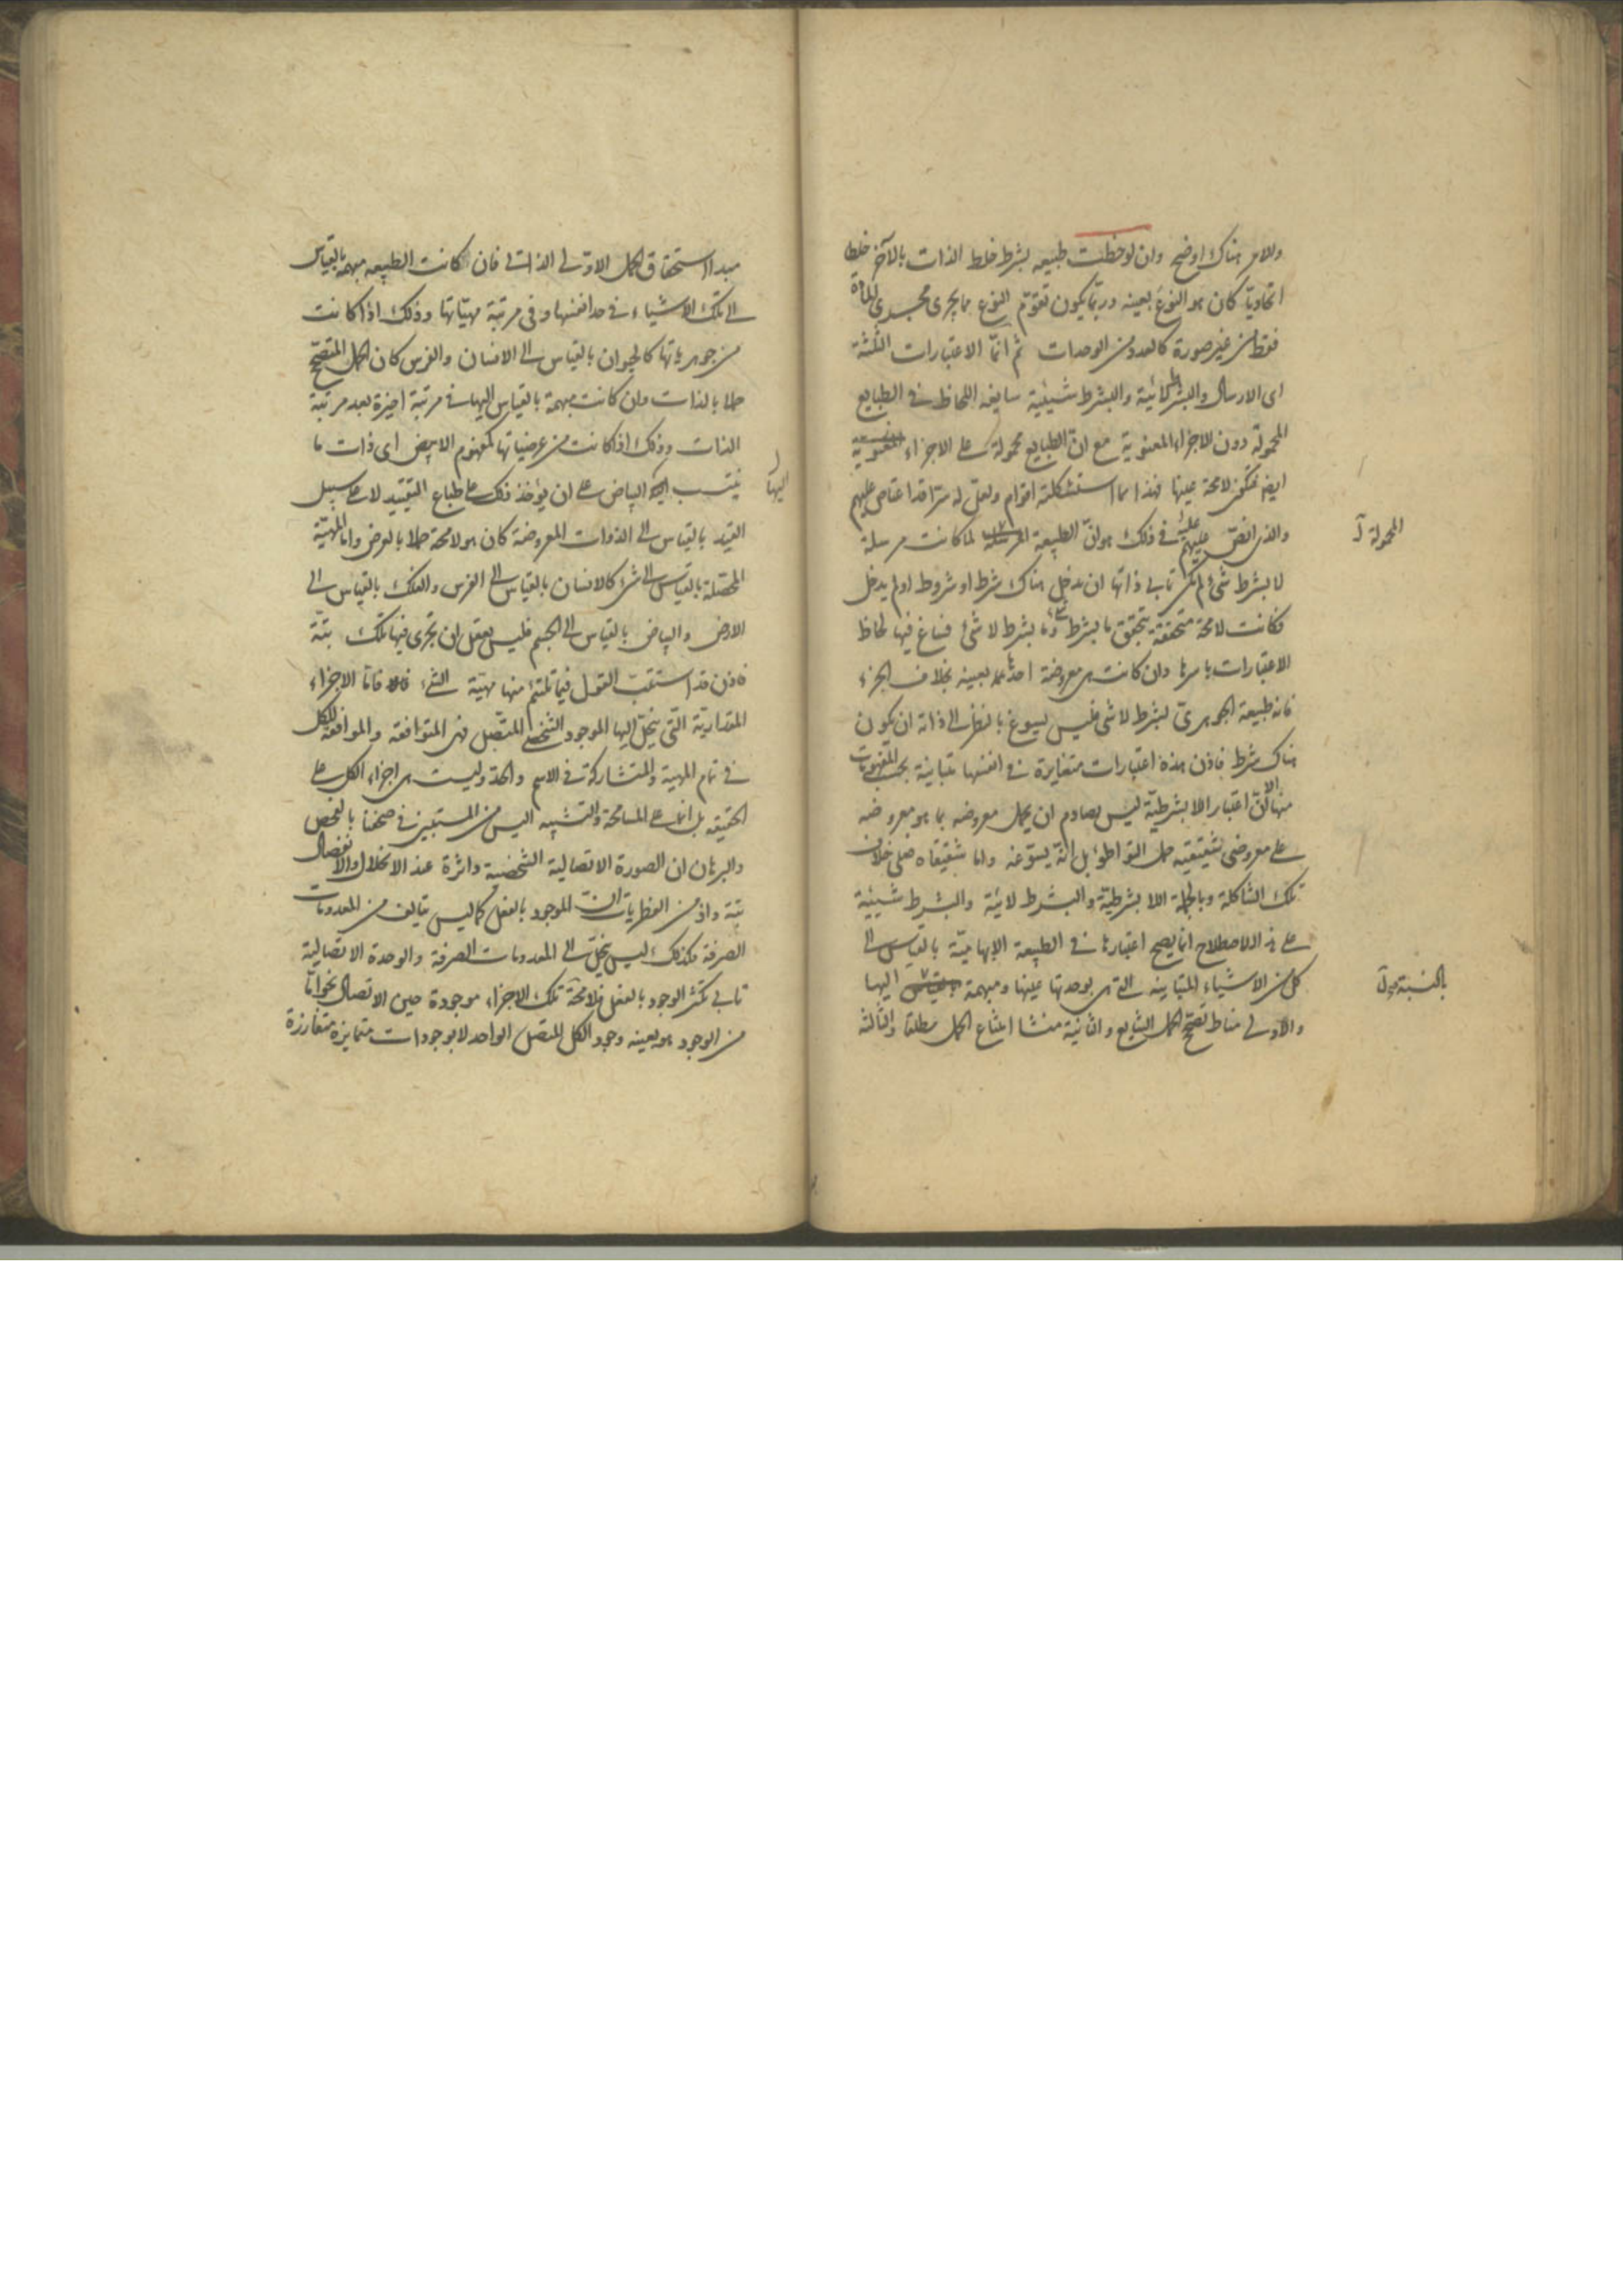 والامر هناك اوضح وان لوحظت طبيعه بشرط خلط الذات بالآخر خلطا
اتحاديا كان هو النوع بعينه وربما يكون تقوم النوع مما يجرى مجرى المادة
فقط من غير صورة كالعدد من الوحدات ثم انما الاعتبارات الثلثة
اى الارسال والبشرط لائية والبشرط شيئية سايغ اللحاظ فى الطبايع
المحمولة دون الاجزاء المعنوية مع ان الطبايع محمولة على الاجزاء المعنوية
ايضا لامحة عينها فهذا مما استشكلته اقوام ولعل له سرا قد اعتاص عليهم
والذى عليهم فى ذلك هو ان الطبيعة المرسلة لما كانت مرسلة
المحمولة
لا بشرط شئ لم تكن تابى ذاتها ان يدخل هناك شرط او شروط او لم يدخل
فكانت لامحة متحققة بتحقق ما بشرط شئ وما بشرط لا شئ فساغ فيها لحاظ
الاعتبارات باسرها وان كانت هى معروضة احدها بعينه بخلاف الجزء
فانه طبيعة الجوهرى بشرط لا شئ فليس يسوغ بالنظر الى ذاته ان يكون
هناك شرط فاذن هذه اعتبارات متغايرة فى انفسها متباينة بحسب المفهومات
منها الا ان اعتبار اللابشرطية ليس يصادم ان يحمل معروضه بما هو معروضه
على معروضى شقيقيه حمل التواطؤ بل انه يسوغه واما شقيقاه فعلى خلاف
تلك الشاكلة وبالجملة اللا بشرطية والبشرط لائية والبشرط شيئية
على هذا الاصطلاح انما يصح اعتبارها فى الطبيعة الابهامية بالقياس الى
كل من الاشياء المتباينه التى هى بوحدتها عينها ومبهمة بالقياس اليها
بالنسبة
والاولى مناط تصحح الحمل الشايع والثانية منشا امتناع الحمل مطلقا والثالثة
مبدا استحقاق الحمل الاولى الذاتى فان كانت الطبيعه مبهمه بالقياس
الى تلك الاشياء فى حد انفسها وفى مرتبة مهياتها وذلك اذا كانت
من جوهرياتها كالحيوان بالقياس الى الانسان والفرس كان الحمل المتصحح
حملا بالذات وان كانت مبهمة بالقياس اليها فى مرتبة اخيرة بعد مرتبة
الذات وذلك اذا كانت من عرضياتها كمفهوم الابيض اى ذات ما
ينتسب اليه البياض على ان يؤخذ ذلك على طباع التقييد لا على سبيل
اليها
القيد بالقياس الى الذوات المعروضة كان هو لامحة حملا بالعرض واما المهية
المحصلة بالقياس الى شئ كالانسان بالقياس الى الفرس والفلك بالقياس الى
الارض والبياض بالقياس الى الجسم فليس يعقل ان تجرى فيها تلك بتة
فاذن قد استتب القول فيما تلتئم منها مهية الشئ فاما الاجزاء
المقدارية التى ينحل اليها الموجود الشخصى المتصل فهى المتوافقة والموافقة للكل
فى تمام المهية والمتشاركة فى الاسم والحد وليست هى اجزاء الكل على
الحقيقه بل انما على المسامحة والتشبيه اليس من المستبين فى صحفنا بالفحص
والبرهان ان الصورة الاتصالية الشخصية داثرة عند الانحلال والانفصال
بتة واذ من الفطريات ان الموجود بالفعل كما ليس يتالف من المعدومات
الصرفة فكذلك ليس ينحل الى المعدومات الصرفة والوحدة الاتصالية
تابى تكثر الوجود بالفعل فلامحة تلك الاجزاء موجودة حين الاتصال نحوا ما
من الوجود هو بعينه وجود الكل المتصل الواحد لا بوجودات متمايزة متفارزة